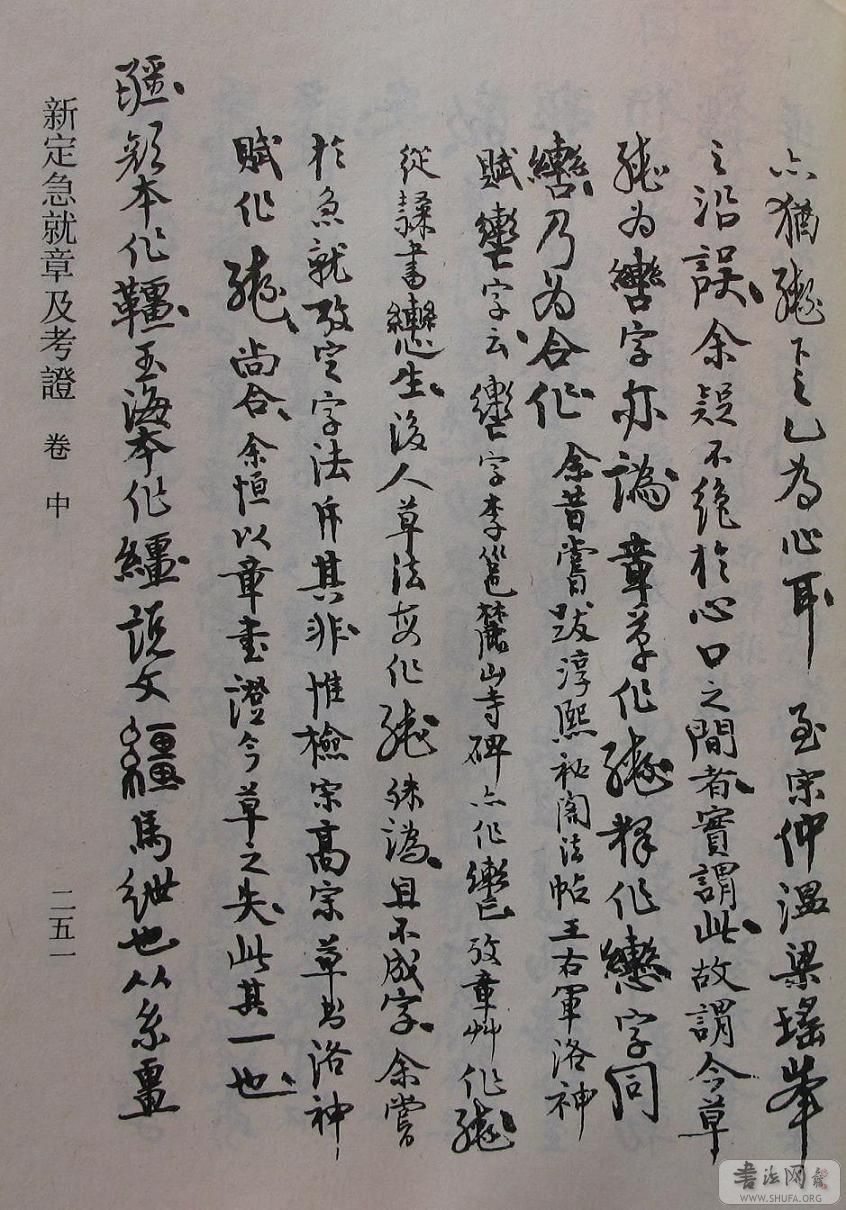 亦猶 下之心為心耳 至宗仲溫梁瑤峯
之沿誤余疑不絕於心口之間者實謂此故謂今草
為轡字亦譌章草作 釋作戀字同
轡乃為合作 余昔嘗跋淳熙祕閣法帖王右軍洛神
賦 字云 字李邕麓山寺碑亦作 攷章艸作
從隸書 生後人草法多作 殊譌且不成字余嘗
於急就攷定字法斥其非惟檢宋高宗草書洛神
賦作 尚合余恒以章書證今草之失此其一也
疆顏本作韁玉海本作繮說文繮馬紲也从糸畺
新定急就章及考證 卷中 二五一
書法网
WWW.SHUFA.ORG